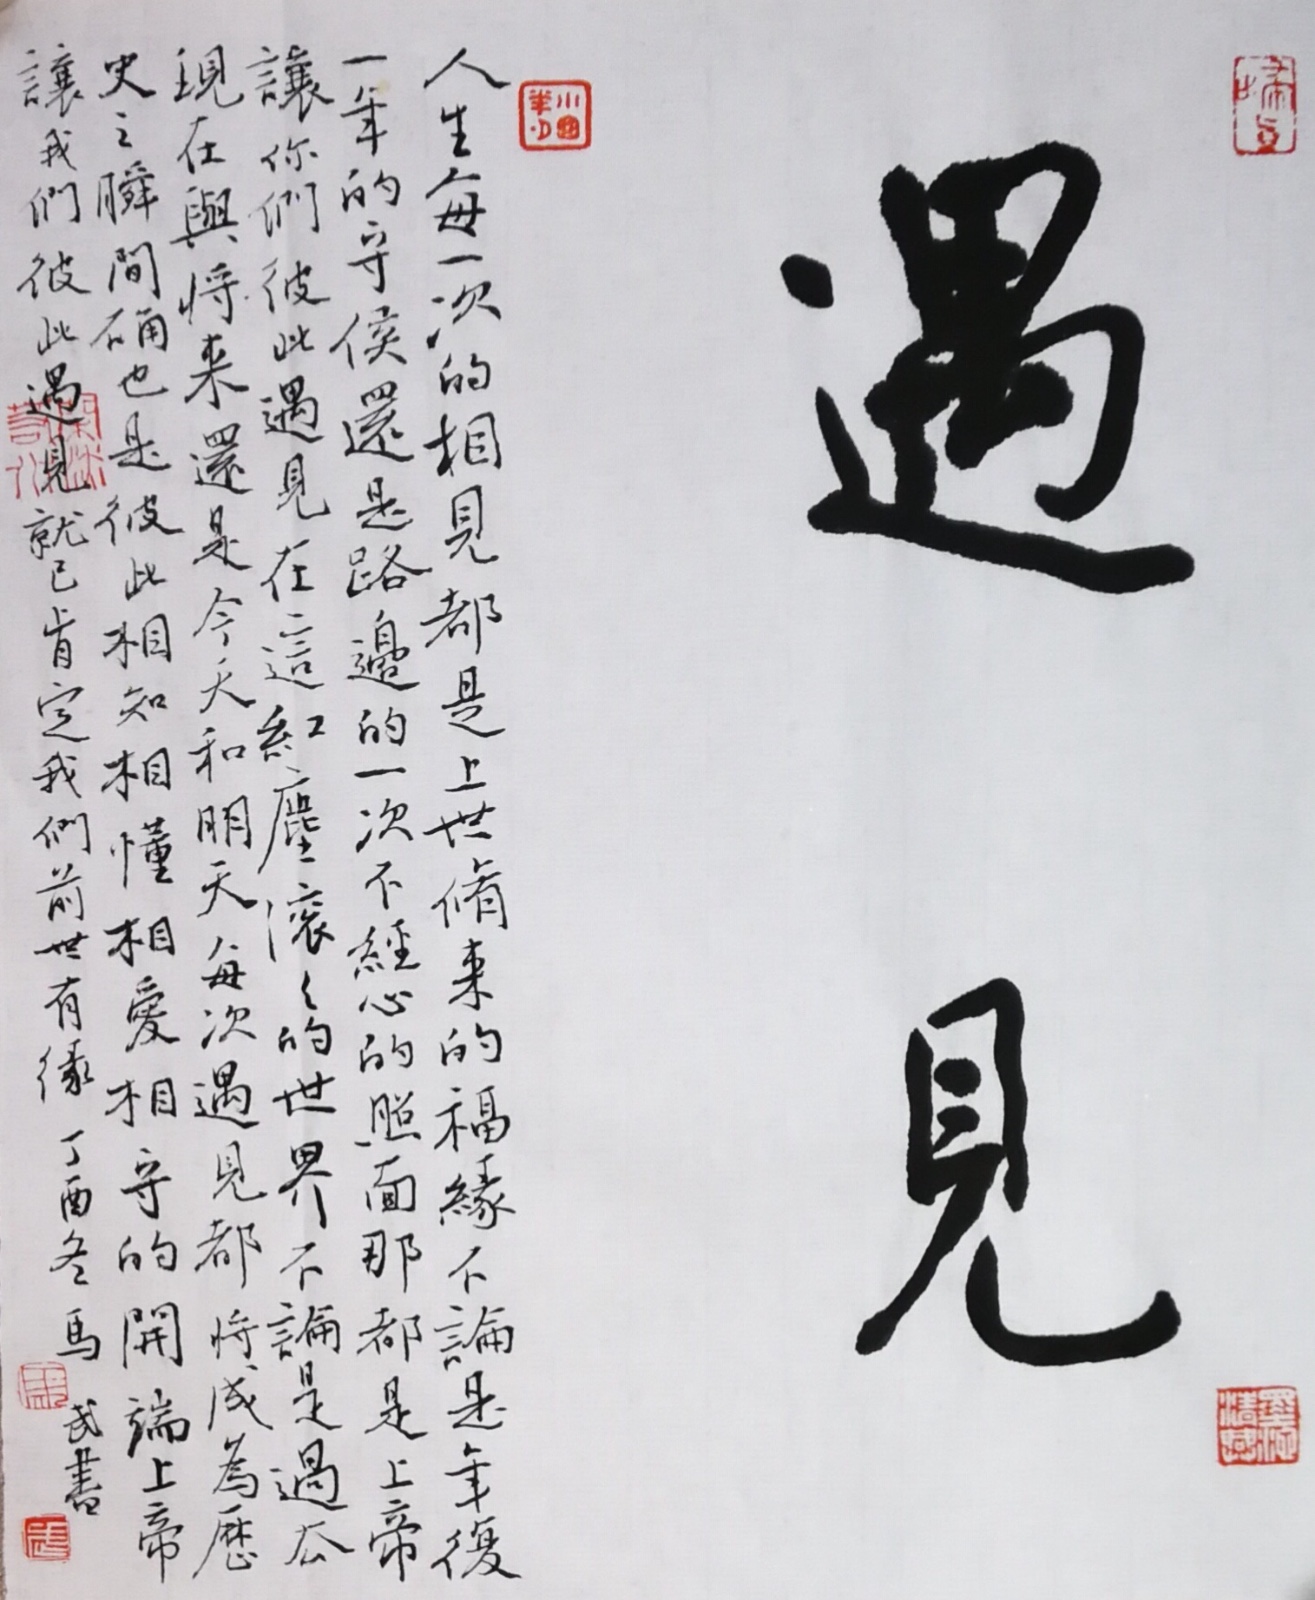 遇見
人生每一次的相見都是上世脩来的福緣不論是年復
一年的守侯還是路邊的一次不經心的照面那都是上帝
讓你們彼此遇見在這紅塵滚々的世界不論是過去
現在與将来還是今天和明天每次遇見都将成為歷
史之瞬間确也是彼此相知相懂相愛相守的開端上帝
讓我們彼此遇見就已肯定我們前世有缘 丁酉冬馬武書